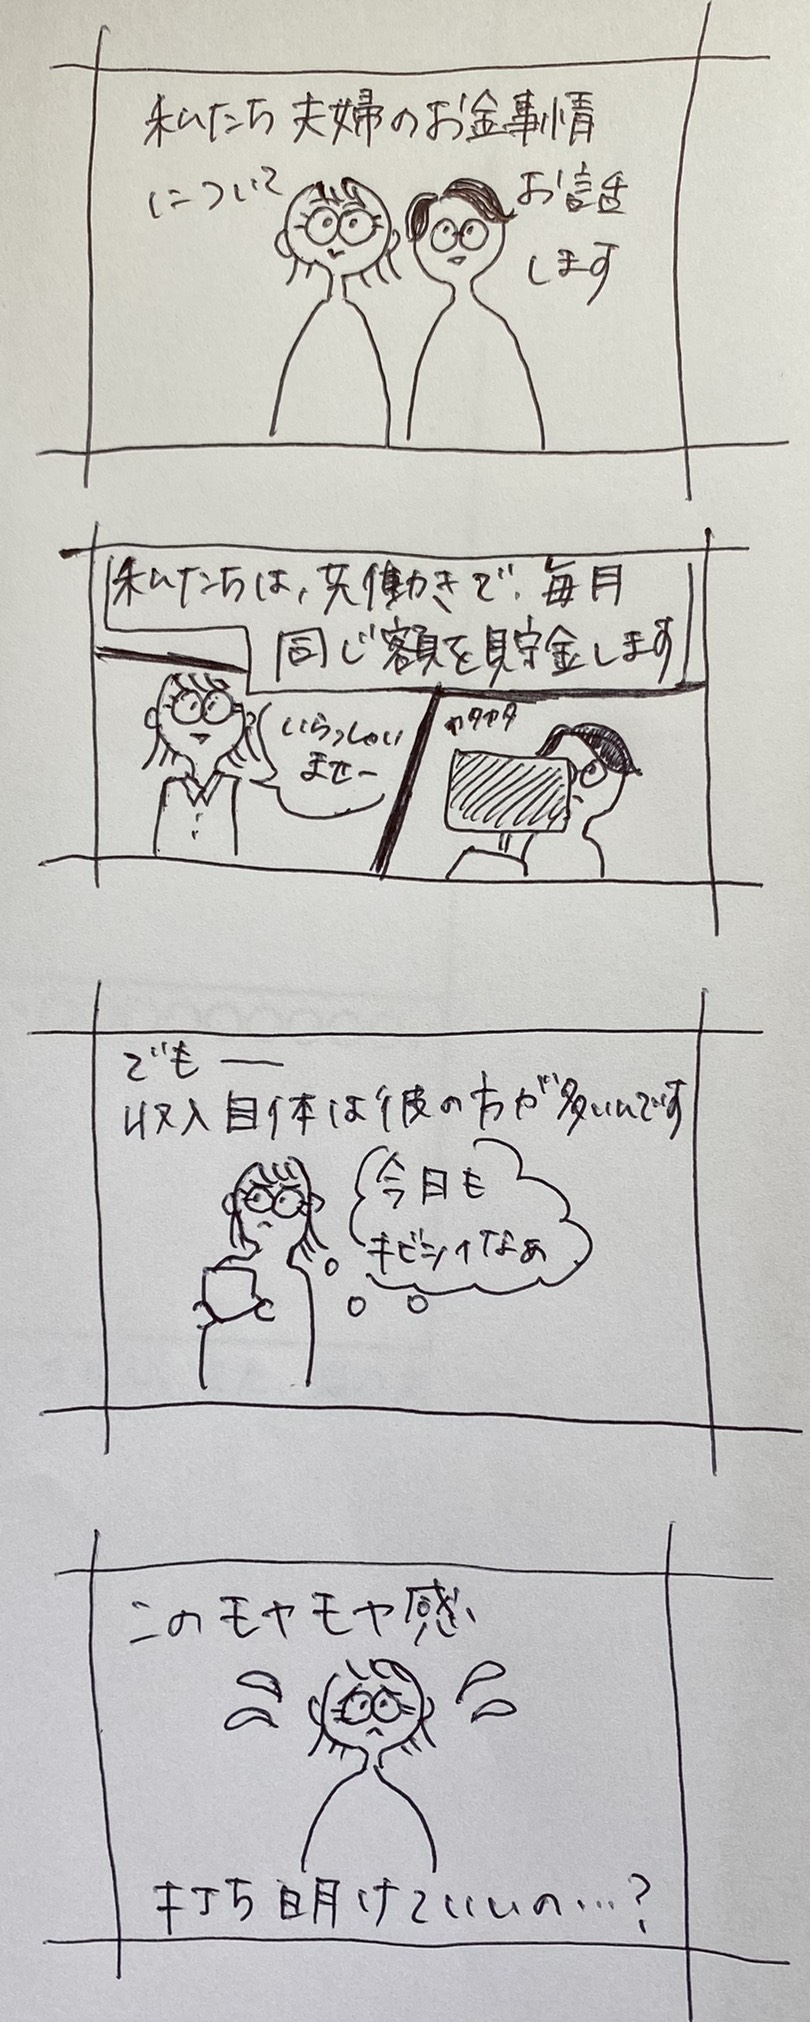 私たち夫婦のお金事情
について
お話
します
私たちは、共働きで、毎月
同じ額を貯金します
いらっしゃい
ませー
カタカタ
でも──
収入自体は彼の方が多いんです
今月も
キビシイなぁ
このモヤモヤ感、
打ち明けていいの…?